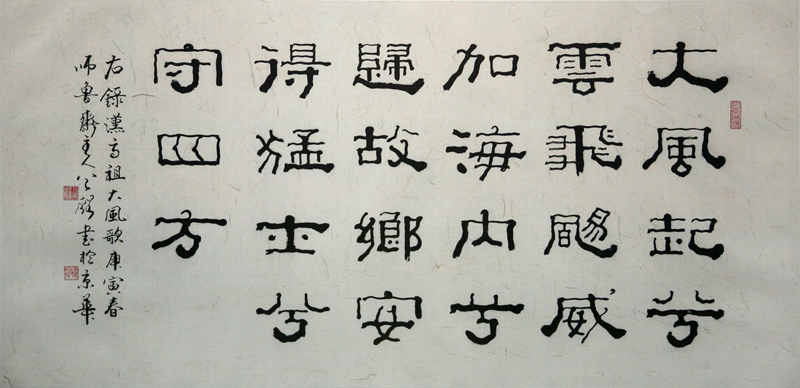 大風起兮
雲飛颺威
加海内兮
歸故鄉安
得猛士兮
守四方
右錄漢高祖大風歌庚寅春
師魯齋主人書於京華